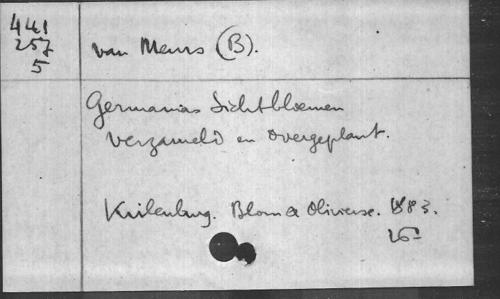 441
257
5
van Meurs (B).
Germanias Dichtbloemen
verzameld en overgeplant.
Kuilenburg. Blom & Olivierse. 1883.